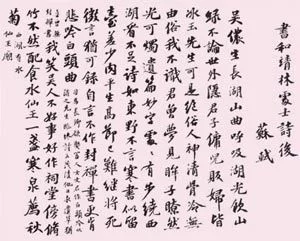 書和靖林處士詩後
蘇軾
吳儂生長湖山曲呼吸湖光飲山
綠不論世外隱君子傭児販婦皆
冰玉先生可是絕俗人神清骨冷無
由俗我不識君曾夢見眸子瞭然
光可燭遺篇妙字處〻有步繞西
湖看不足詩如東野不言寒書似留
臺差少肉平生高節已難繼將死
微言猶可錄自言不作封禪書更肯
悲吟白頭曲
我笑吳人不好事好作祠堂傍修
竹不然配食水仙王一盞寒泉薦秋
菊
有水
仙王廟